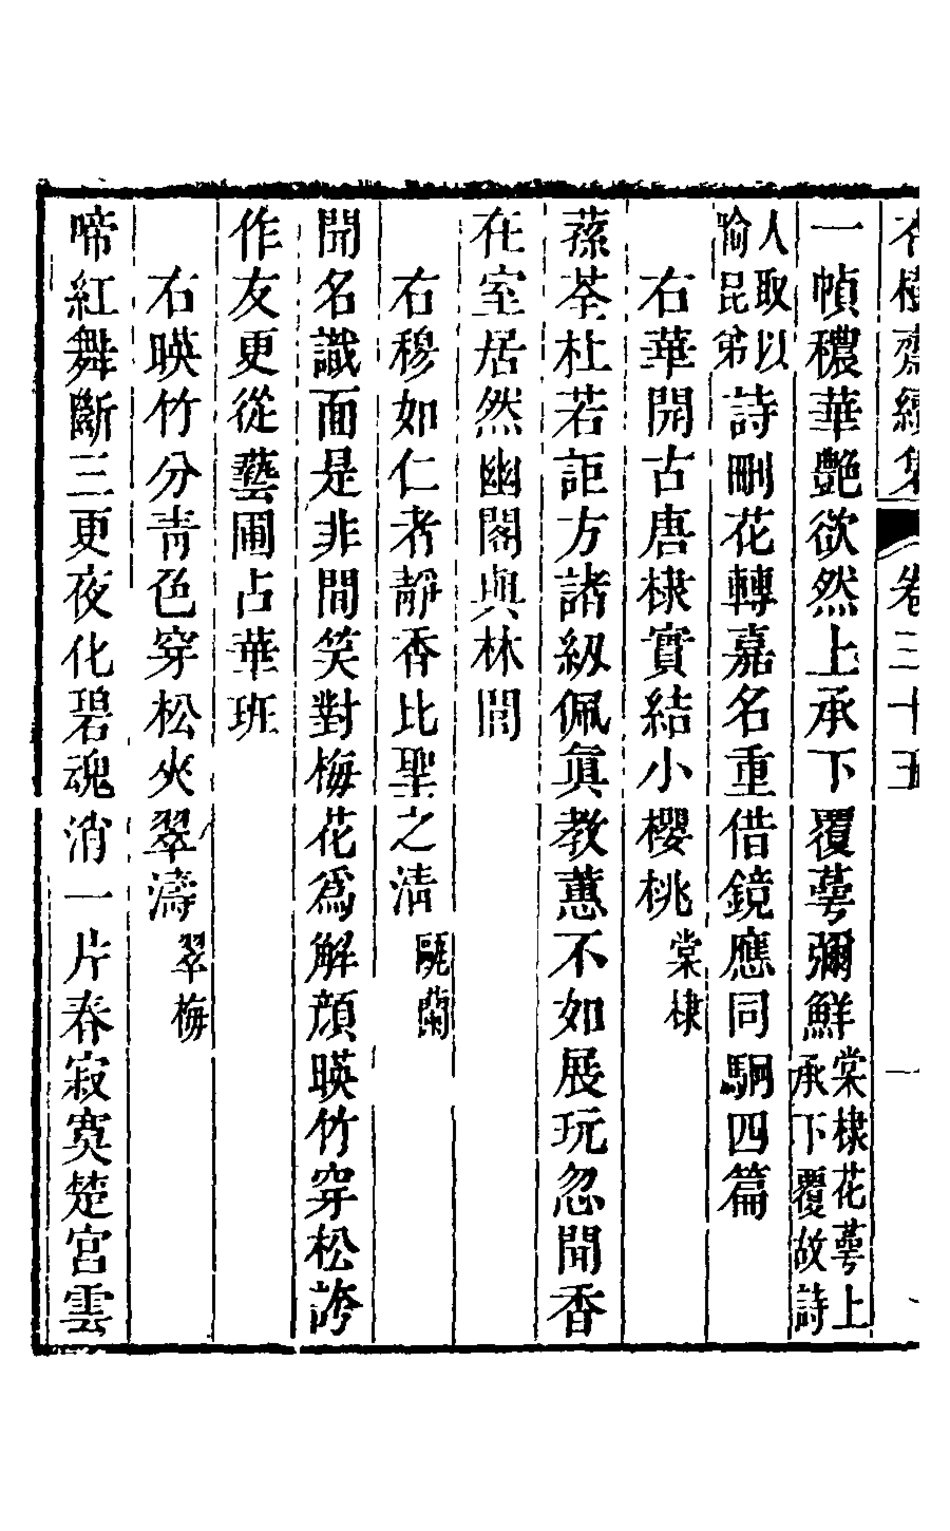 卷三十五
一幀穠華艷欲然上承下覆萼彌鮮棠棣花萼上承下覆故詩
人取以喻昆弟詩刪花轉嘉名重借鏡應同駉四篇
右華開古唐棣實結小櫻桃棠棣
蓀荃杜若詎方諸紉佩眞教蕙不如展玩忽聞香
在室居然幽閣與林閭
右穆如仁者靜香比聖之淸甌蘭
聞名識面是非間笑對梅花爲解顏暎竹穿松誇
作友更從藝圃占華班
右暎竹分靑色穿松夾翠濤翠梅
啼紅舞斷三更夜化碧魂消一片春寂寞楚宮雲